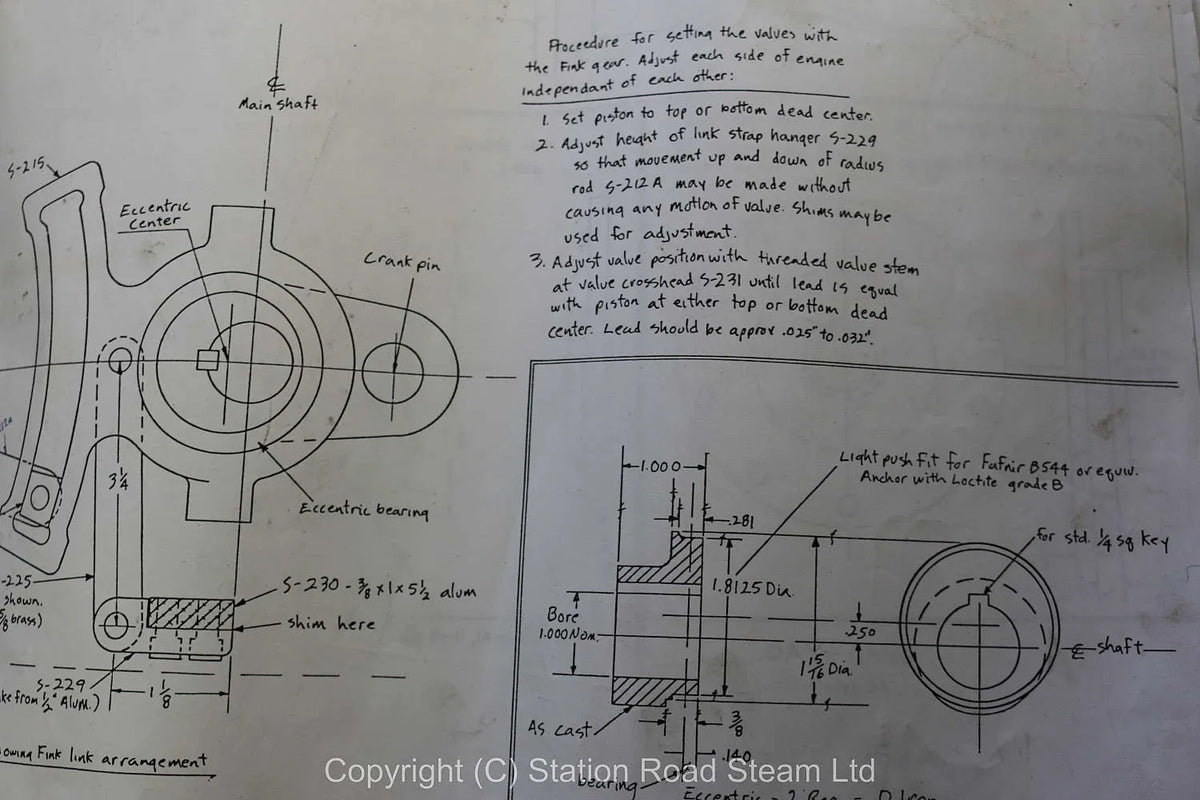 Proceedure for setting the valves with
the Fink gear. Adjust each side of engine
independant of each other:
1. Set piston to top or bottom dead center.
2. Adjust height of link strap hanger S-229
so that movement up and down of radius
rod S-212A may be made without
causing any motion of valve. Shims may be
used for adjustment.
3. Adjust valve position with threaded valve stem
at valve crosshead S-231 until lead is equal
with piston at either top or bottom dead
center. Lead should be approx .025" to .032".
℄
Main shaft
S-215
Eccentric
Center
Crank pin
3 1/4
Eccentric bearing
-225
shown.
5/8 brass)
S-230 - 3/8 x 1 x 5 1/2 alum
shim here
S-229
ke from 1/2" Alum.)
1 1/8
owing Fink link arrangement
1.000
.281
Light push fit for Fafnir B544 or equiv.
Anchor with Loctite grade B
for std. 1/4 sq key
1.8125 Dia.
Bore
1.000 Nom.
.250
1 15/16 Dia.
℄ shaft
As cast
3/8
.140
bearing
Eccentric - 2 Req -
Copyright (C) Station Road Steam Ltd